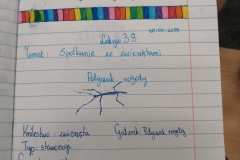 Lekcja 38
Temat: Spotkanie ze zwierzętami
Patyczak rogaty
Królestwo: zwierzęta
Gatunek: Patyczak rogaty
Typ: stawonogi